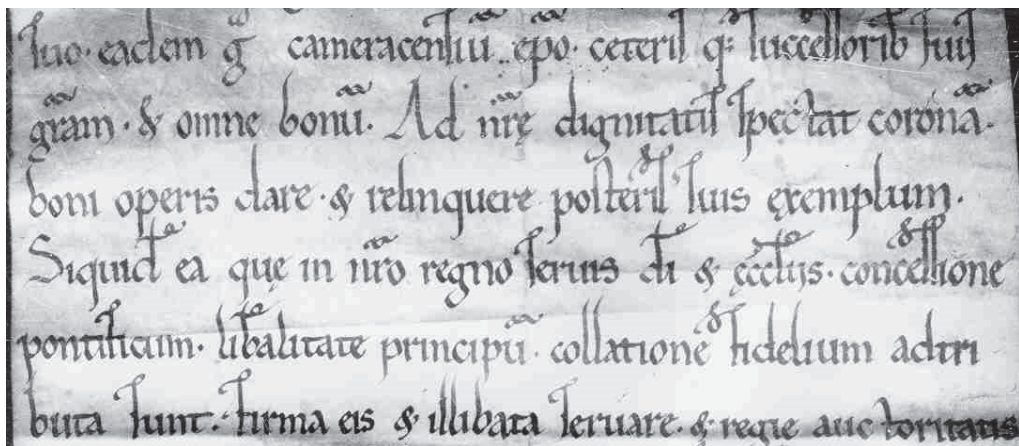 suo· eadem g̅ cameracensiu̅ ep̅o· ceteris q; successorib; suis
gr̅am· & omne bonu̅· Ad nr̅ę dignitatis spectat corona̅·
boni operis dare· & relinquere posteris suis exemplum·
Siquid̅ ea quę in nr̅o regno seruis di̅ & ęccl̅iis· concessione
pontificum· lib̅alitate principu̅· collatione fidelium adtri
buta sunt· firma eis & illibata seruare· & regie auctoritatis